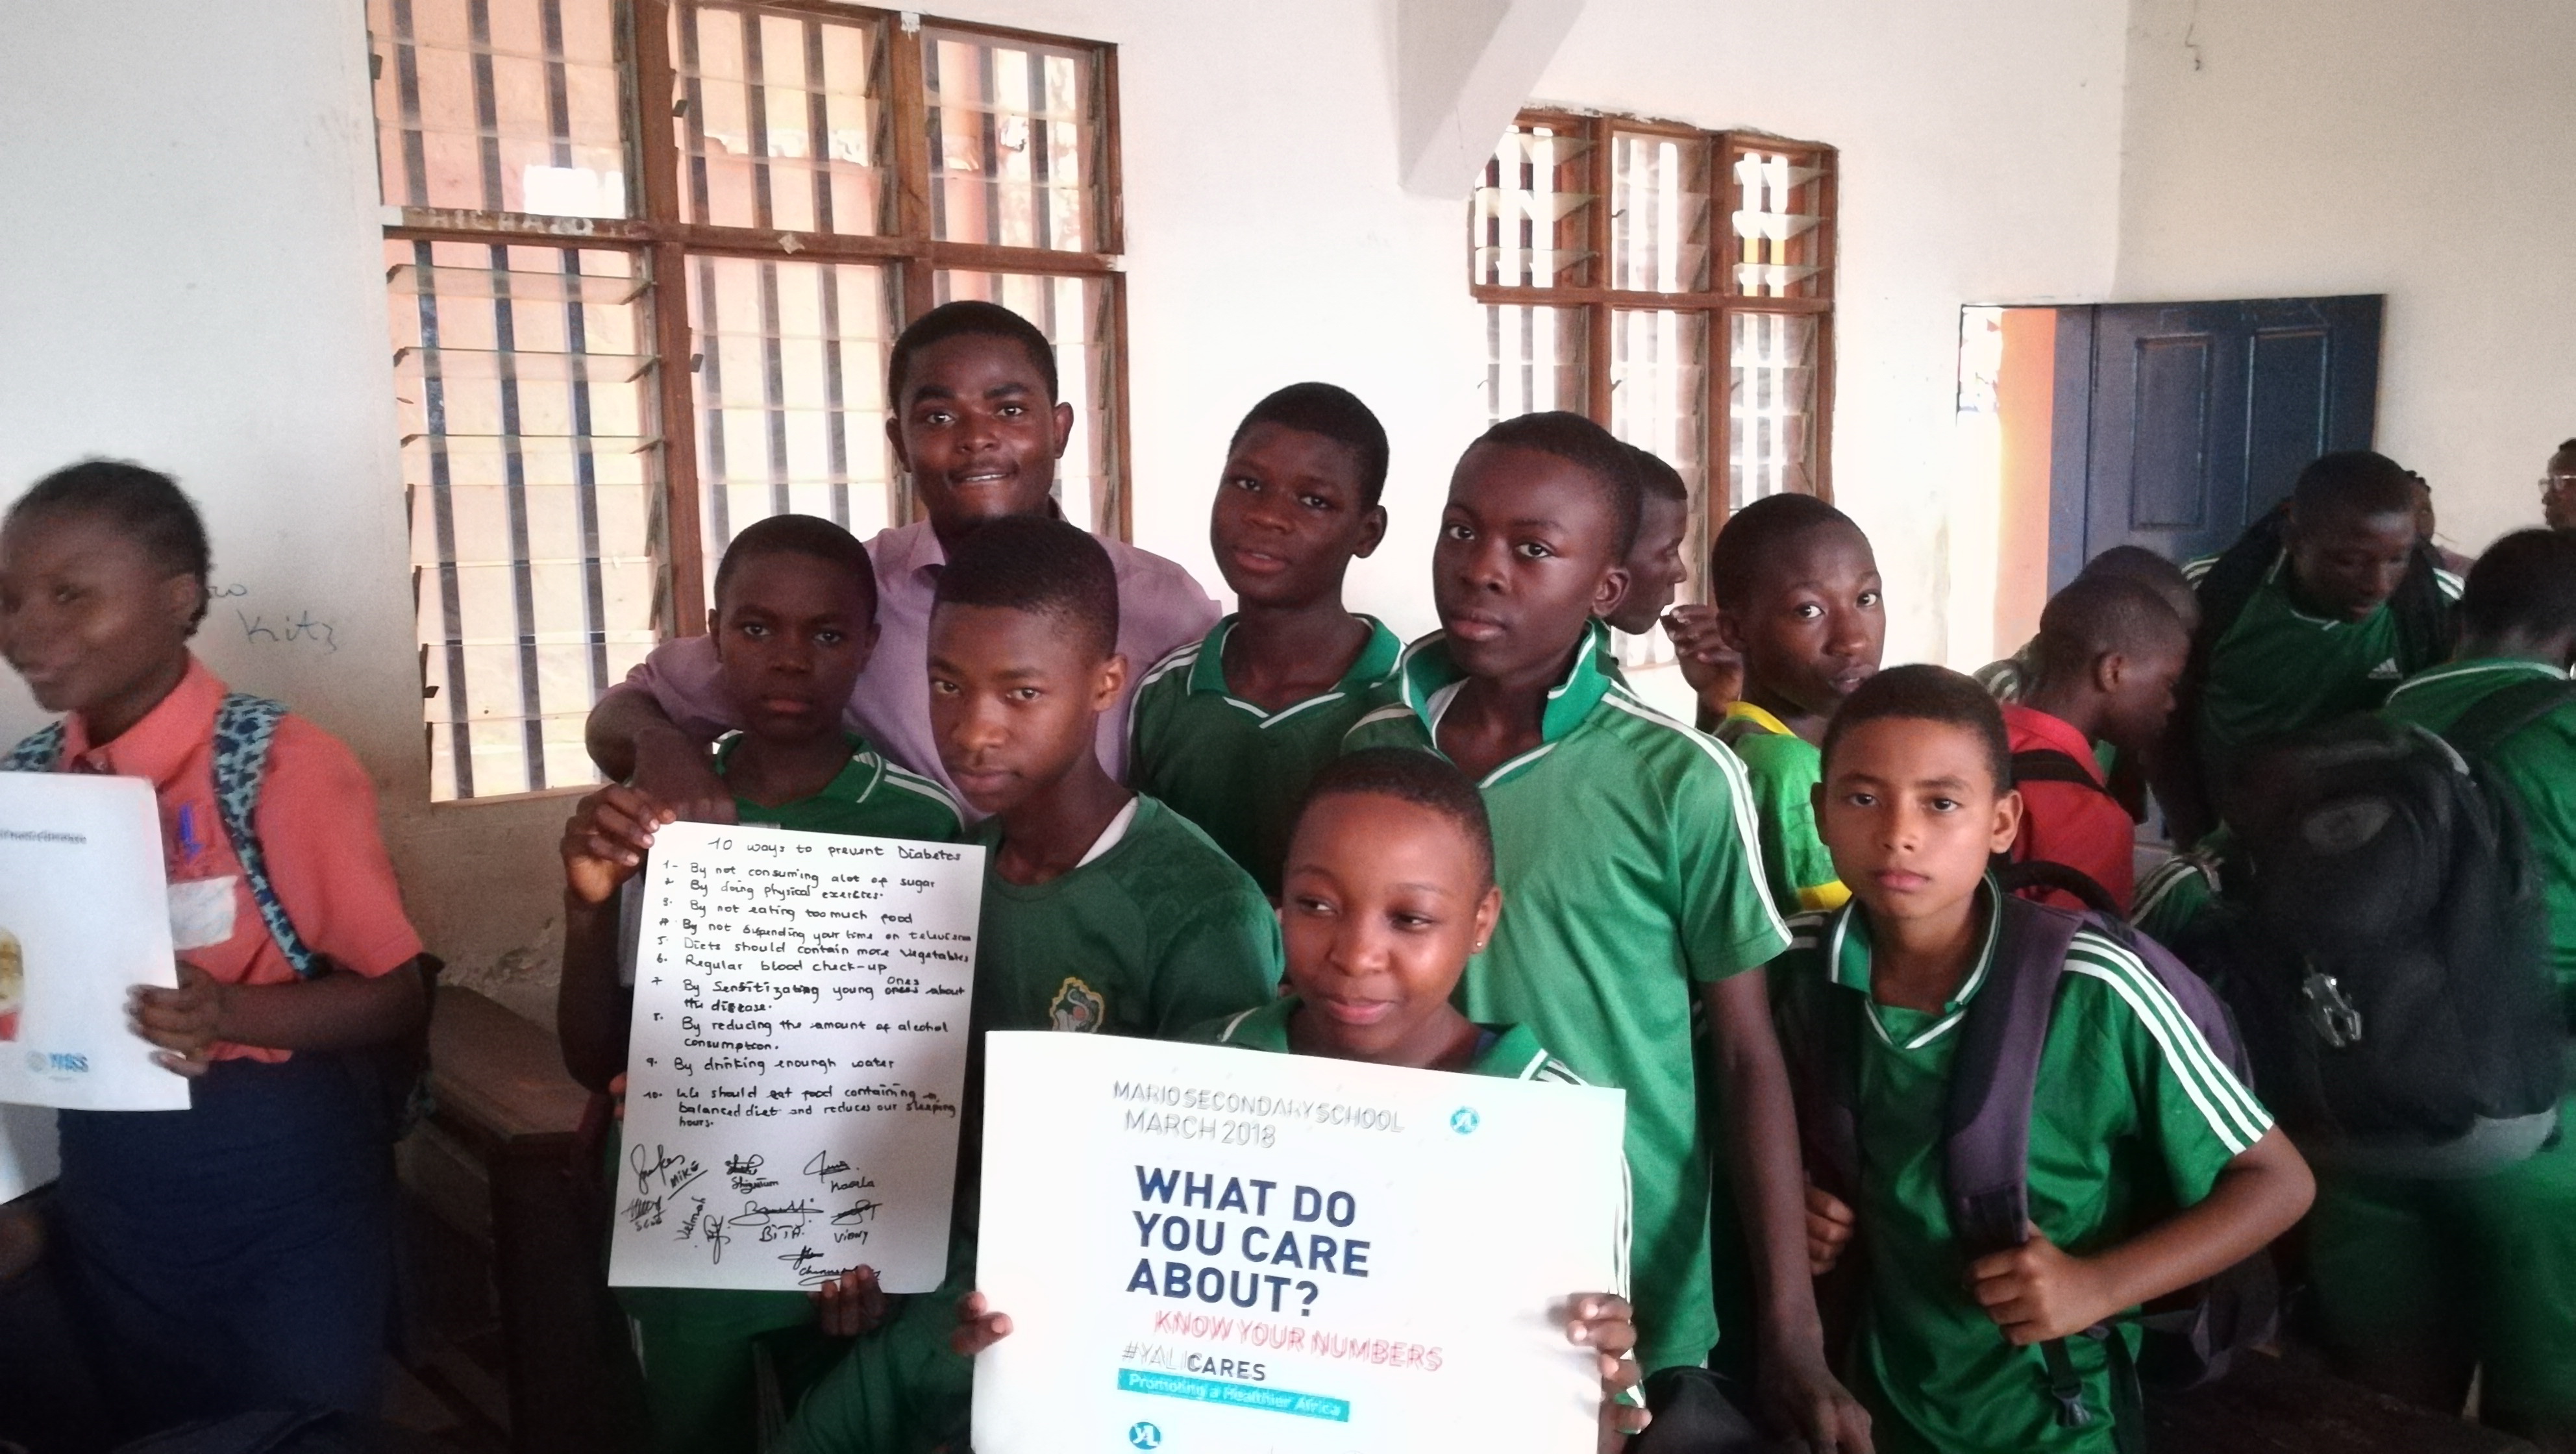 Kitz
10 ways to prevent Diabetes
1- By not consuming alot of sugar
2. By doing physical exercises.
3. By not eating too much food
4. By not spending your time on television
5. Diets should contain more vegetables
6. Regular blood check-up
7 By Sensitizating young ones about
Ones
the disease.
8. By reducing the amount of alcohol
consumption.
9. By drinking enough water
10. We should eat food containing a
balanced diet and reduces our sleeping
hours.
MIKE
BITA
MARIO SECONDARY SCHOOL
MARCH 2018
WHAT DO
YOU CARE
ABOUT?
KNOW YOUR NUMBERS
#YALICARES
Promoting a Healthier Africa